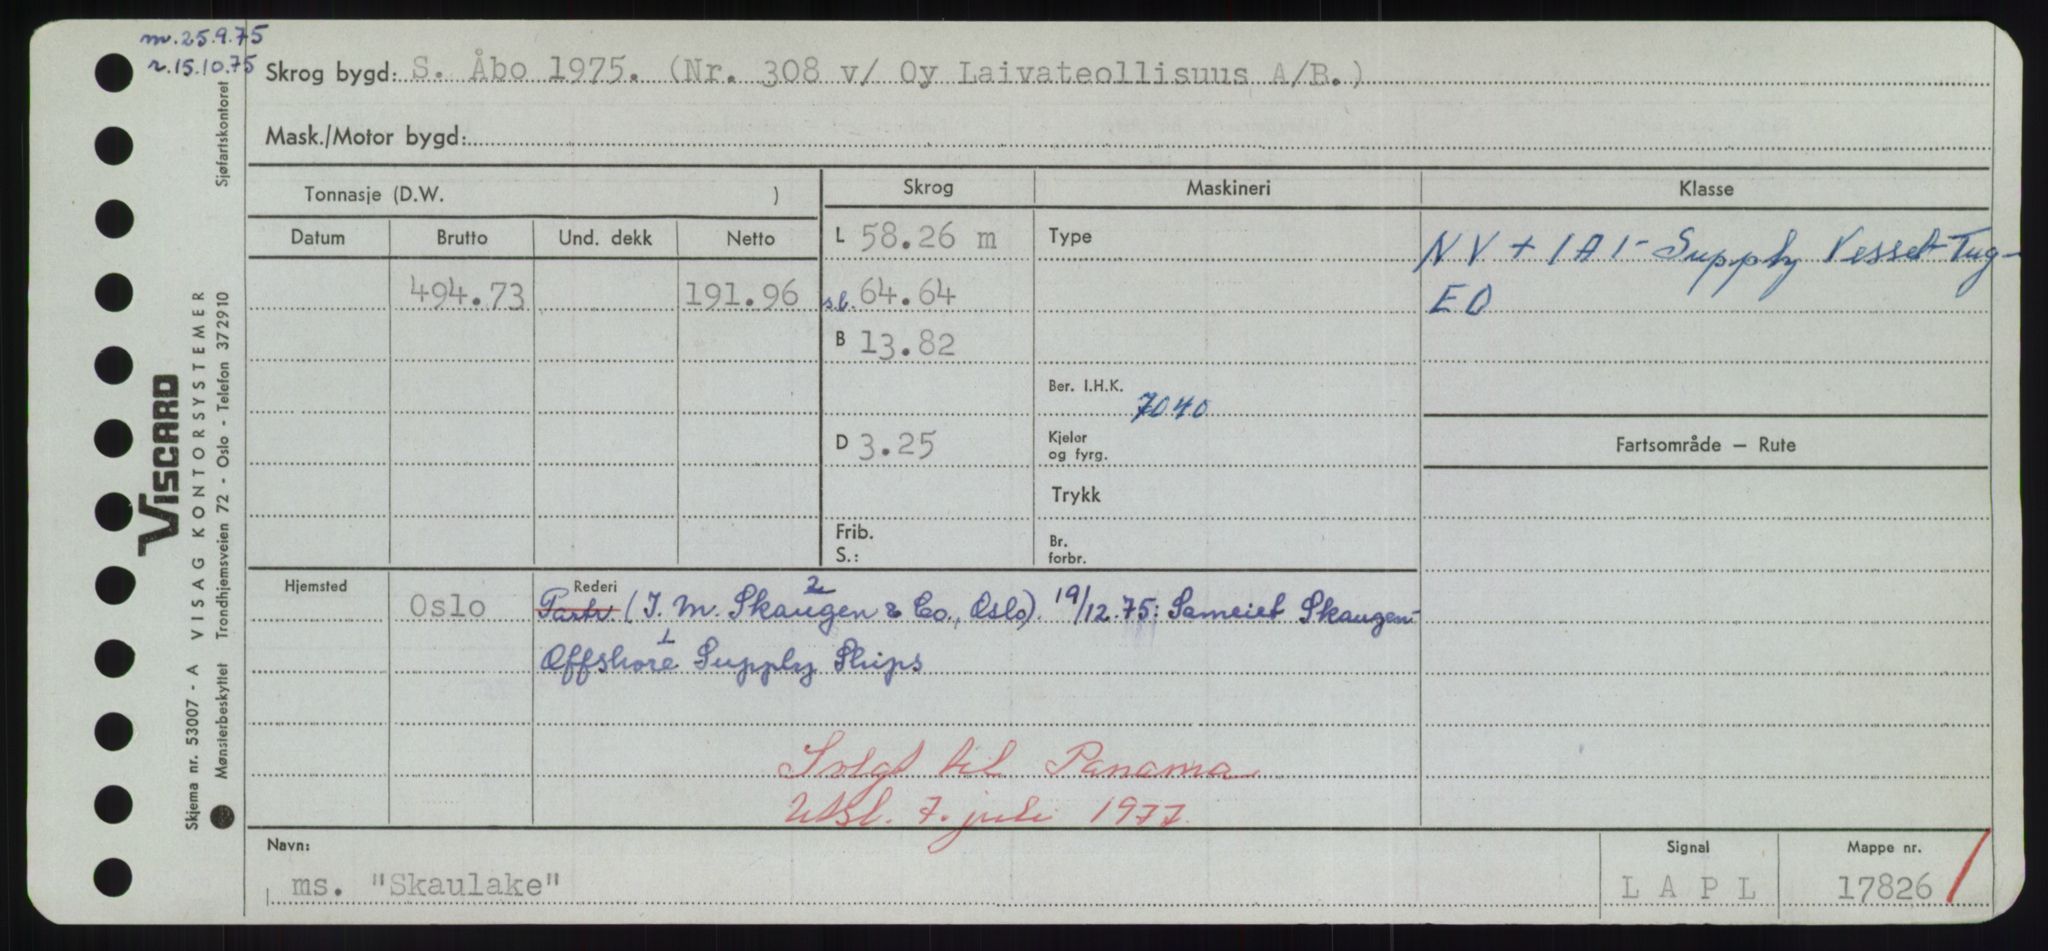 m. 25.9.75
r. 15.10.75
Skrog bygd: S. Åbo 1975. (Nr. 308 v/ Oy Laivateollisuus A/B.)
Mask./Motor bygd:
Tonnasje (D.W. )
Skrog
Maskineri
Klasse
Datum Brutto Und. dekk Netto
L 58.26 m
Type
NV + 1A1 - Supply Vessel-Tug-
494.73 191.96
s.b. 64.64
EO
B 13.82
Ber. I.H.K.
7040
D 3.25
Kjeler
og fyrg.
Fartsområde — Rute
Trykk
Frib.
S.:
Br.
forbr.
Hjemsted
Oslo
Rederi
Partr. (I. M. Skaugen & Co., Oslo). 19/12.75: Sameiet Skaugen-
2
1
Offshore Supply Ships
Solgt til Panama
Utsl. 7. juli 1977.
Navn:
ms. "Skaulake"
Signal
L A P L
Mappe nr.
17826
VISCARD
Skjema nr. 53007 - A VISAG KONTORSYSTEMER
Mønsterbeskyttet Trondhjemsveien 72 - Oslo - Telefon 372910
Sjøfartskontoret